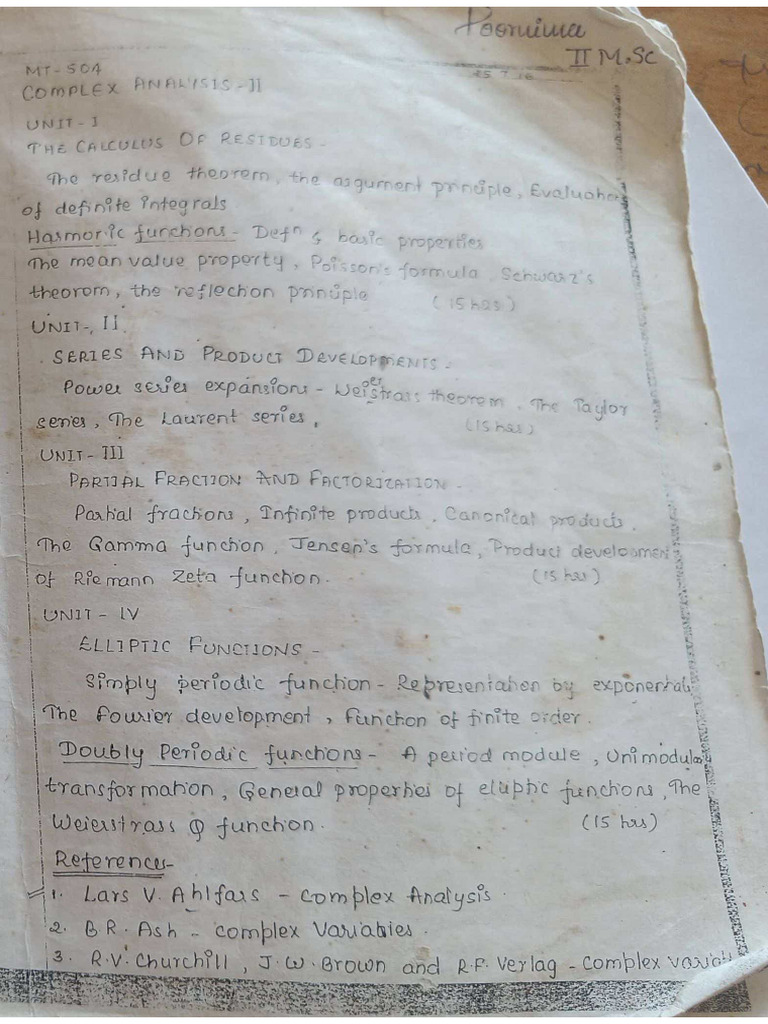 Poornima
II M.Sc
MT-504
COMPLEX ANALYSIS-II
UNIT-I
THE CALCULUS OF RESIDUES-
The residue theorem, the argument principle, Evaluation
of definite integrals
Harmonic functions- Defn & basic properties
The mean value property, Poisson's formula, Schwarz's
theorem, the reflection principle (15 hrs)
UNIT-II
SERIES AND PRODUCT DEVELOPMENTS-
Power series expansions- Weierstrass theorem, The Taylor
series, The Laurent series, (15 hrs)
UNIT-III
PARTIAL FRACTION AND FACTORIZATION-
Partial fractions, Infinite products, Canonical products,
The Gamma function, Jensen's formula, Product developmen
of Riemann Zeta function. (15 hrs)
UNIT-IV
ELLIPTIC FUNCTIONS-
Simply periodic function- Representation by exponentials
The Fourier development, Function of finite order.
Doubly Periodic functions- A period module, Unimodular
transformation, General properties of elliptic functions, The
Weierstrass ℘ function. (15 hrs)
References-
1. Lars V. Ahlfars - Complex Analysis.
2. B.R. Ash - complex Variables.
3. R.V. Churchill, J.W. Brown and R.F. Verlag - complex variab